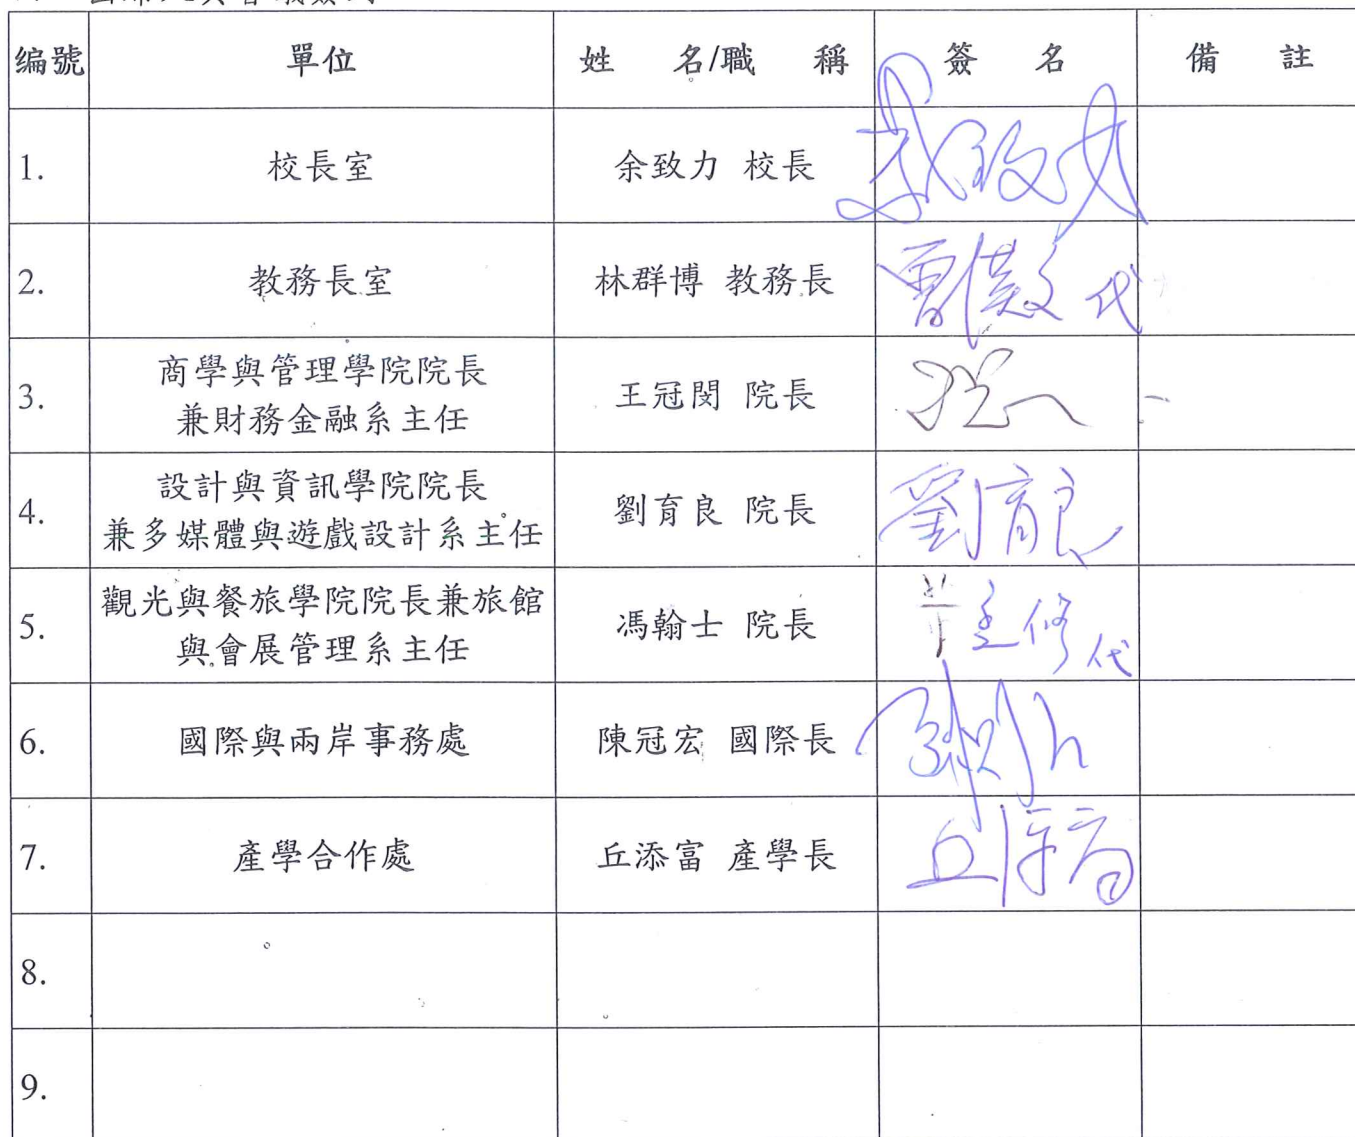 編號 單位 姓 名/職 稱 簽 名 備 註
1. 校長室 余致力 校長
2. 教務長室 林群博 教務長 代
3. 商學與管理學院院長
兼財務金融系主任 王冠閔 院長
4. 設計與資訊學院院長
兼多媒體與遊戲設計系主任 劉育良 院長 劉育良
5. 觀光與餐旅學院院長兼旅館
與會展管理系主任 馮翰士 院長 代
6. 國際與兩岸事務處 陳冠宏 國際長
7. 產學合作處 丘添富 產學長
8.
9.